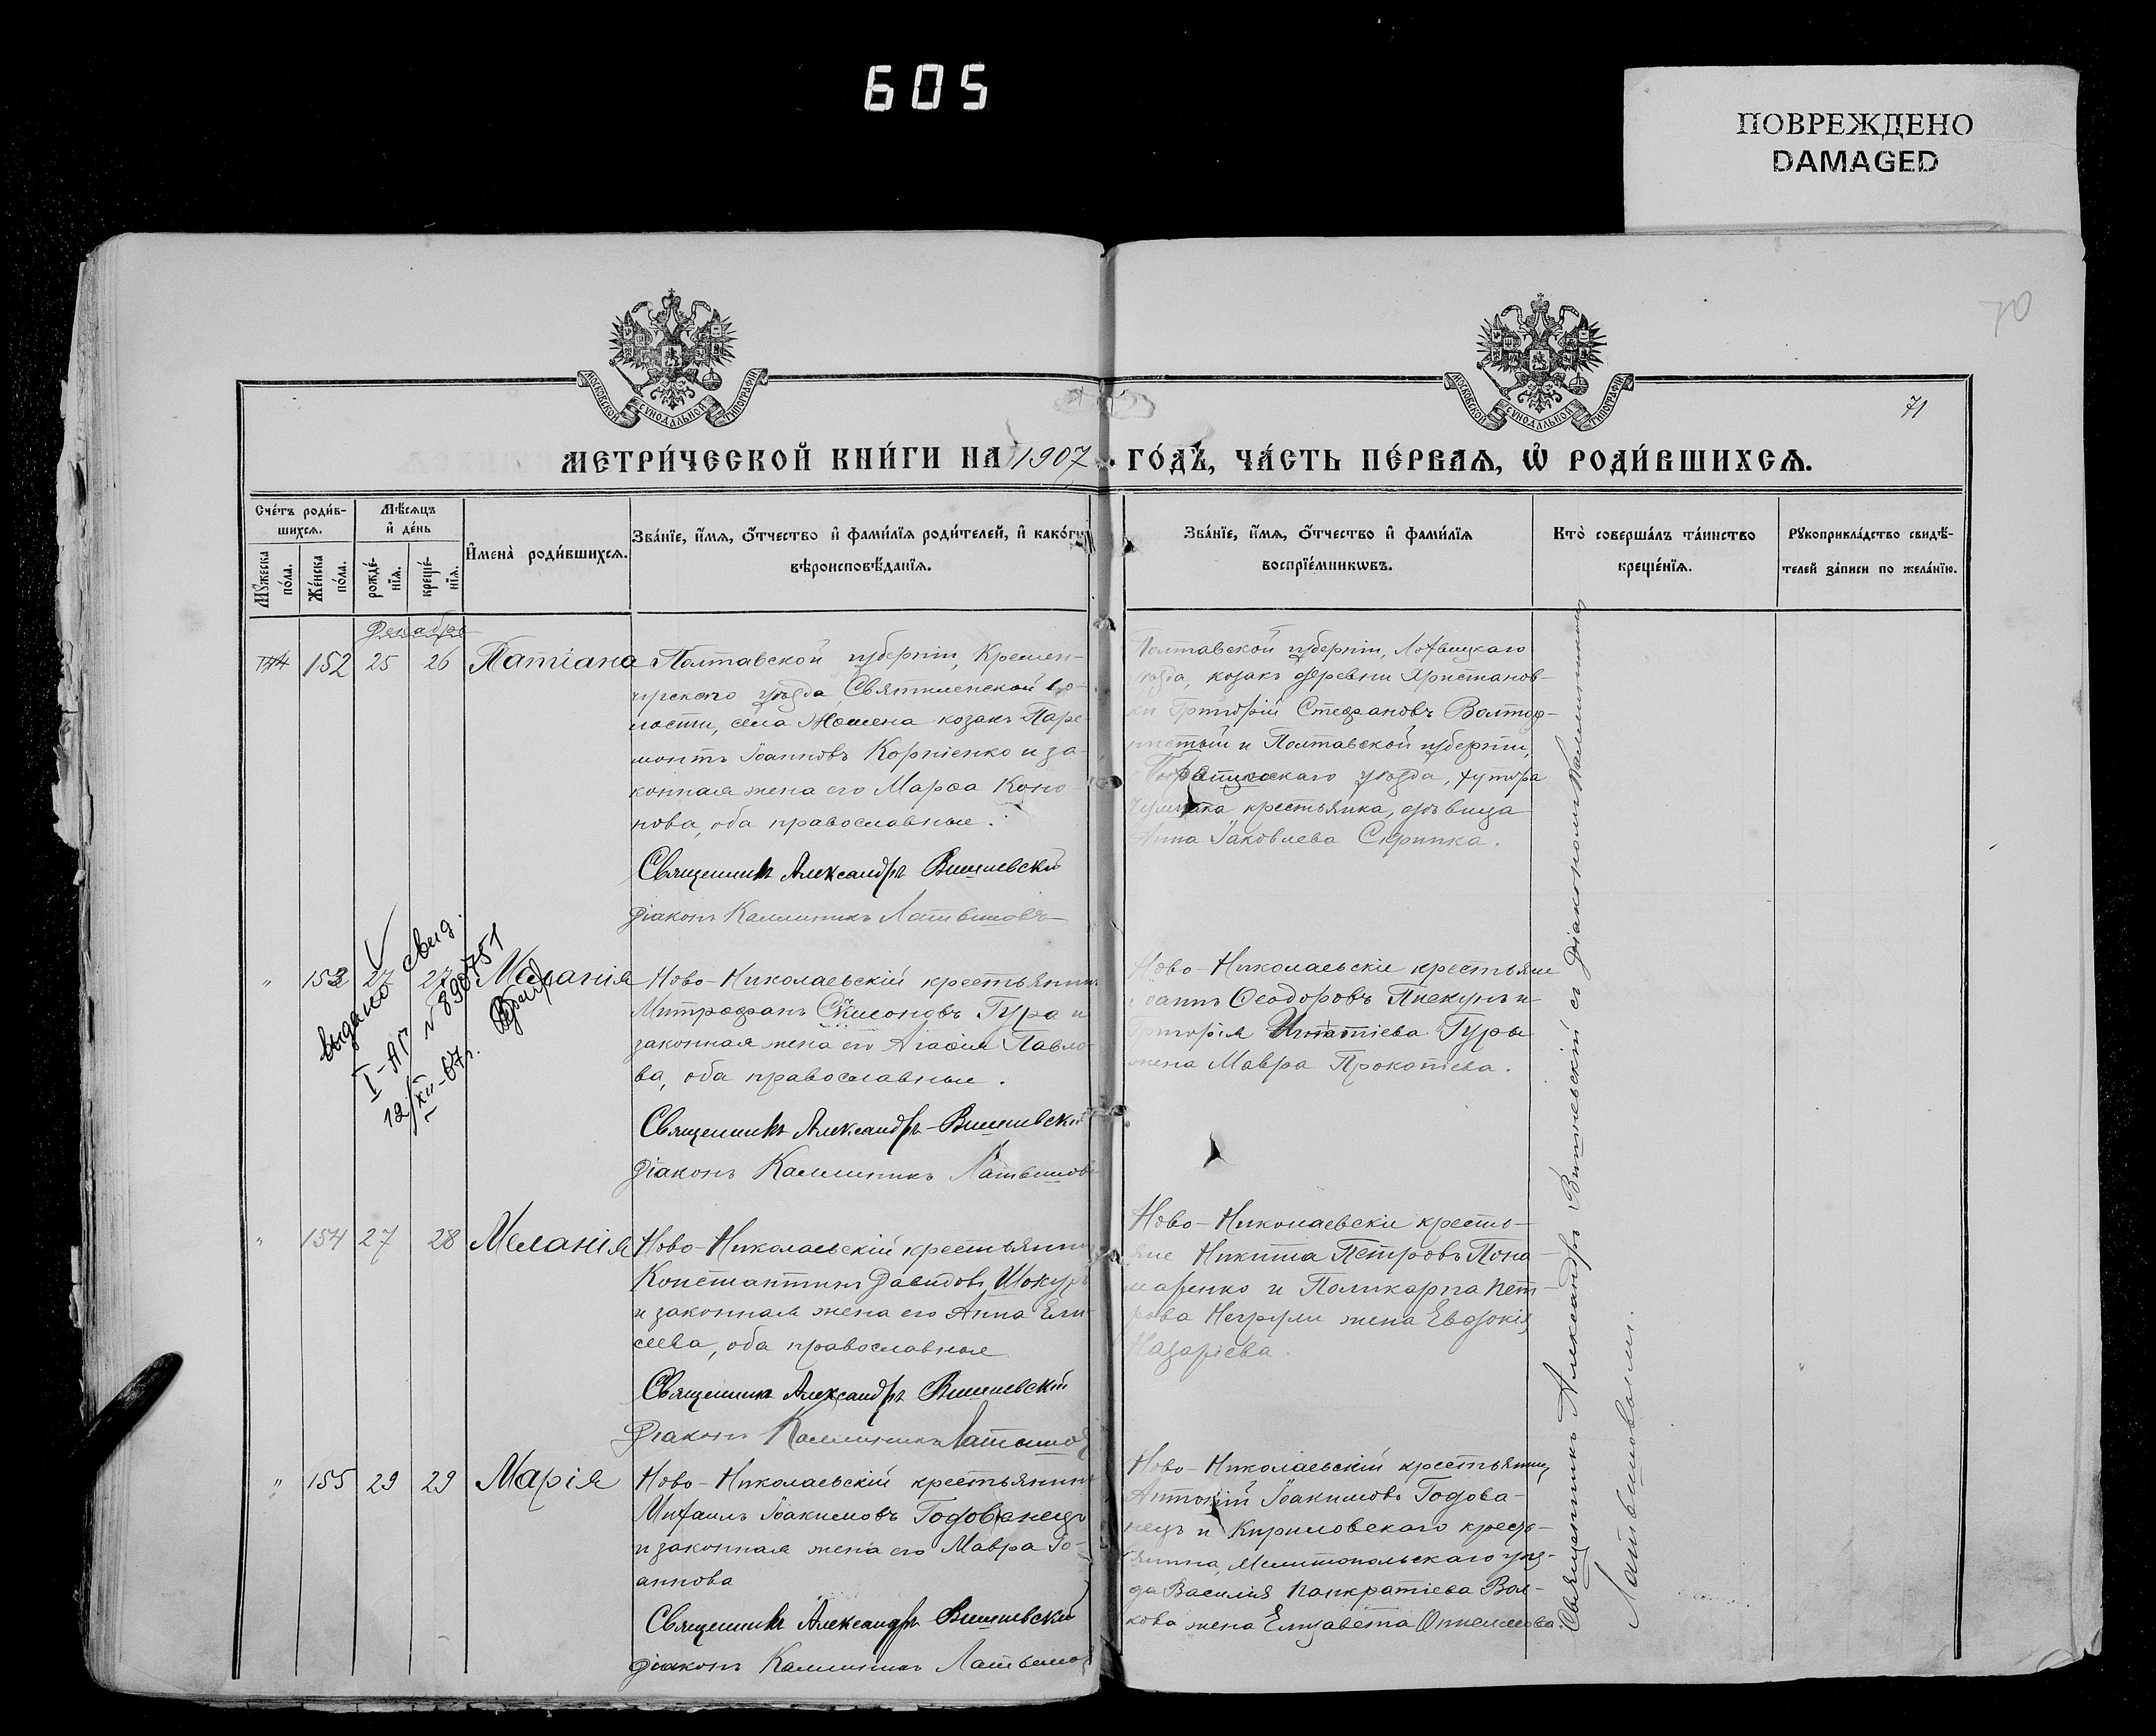 605
ПОВРЕЖДЕНО
DAMAGED
70
МОСКОВСКОЙ СѴНОДАЛЬНОЙ ТИПОГРАФІИ
МОСКОВСКОЙ СѴНОДАЛЬНОЙ ТИПОГРАФІИ
71
МЕТРИ́ЧЕСКОЙ КНИ́ГИ НА 1907 ГО́ДЪ, ЧА́СТЬ ПЕ́РВАѦ, Ѡ҆ РОДИ́ВШИХСѦ.
Сче́тъ роди́в-
шихсѧ.
Мꙋ́жеска
по́ла.
Же́нска
по́ла.
Мѣ́сѧцъ
и҆ де́нь
рожде́-
нїѧ.
креще́-
нїѧ.
И҆мена̀ роди́вшихсѧ.
Зва́нїе, и҆́мѧ, ѻ҆́тчество и҆ фами́лїѧ роди́телей, и҆ како́гѡ
вѣроисповѣ́данїѧ.
Зва́нїе, и҆́мѧ, ѻ҆́тчество и҆ фами́лїѧ
воспрїе́мникѡвъ.
Кто̀ соверша́лъ та́инство
креще́нїѧ.
Рꙋкоприкла́дство свидѣ́-
телей за́писи по жела́нїю.
Декабрь
152 25 26 Татіана
Полтавской губерніи, Кремен-
чугского уѣзда,
лости, села козакъ Паре-
монтъ Іоанновъ Корніенко и за-
конная жена его Марѳа Коно-
нова, оба православные.
Священникъ Александръ Вишневскій
Діаконъ Каллиникъ Латышовъ
Полтавской губерніи, Лохвицкаго
уѣзда, козакъ деревни Христанов-
ки Григорій Стефановъ
и Полтавской губерніи,
уѣзда, хутора
крестьянка, дѣвица
Анна Іаковлева Скрипка.
" 153 27 27 Меланія
Ново-Николаевскій крестьянинъ
Митрофанъ Симеоновъ Гура и
законная жена его Агафія Павло-
ва, оба православные.
Священникъ Александръ Вишневскій
Діаконъ Каллиникъ Латышовъ
Ново-Николаевскіе крестьяне
Іоаннъ Ѳеодоровъ Пискунъ и
Григорія Игнатіева Гуры
жена Мавра Прокопіева.
выдано свид.
I-АП № 890751
12/XII-67г.
" 154 27 28 Меланія
Ново-Николаевскій крестьянинъ
Константинъ Давидовъ Шокуръ
и законная жена его Анна Ели-
сеева, оба православные
Священникъ Александръ Вишневскій
Діаконъ Каллиникъ Латышовъ
Ново-Николаевскіе кресть-
яне Никита Петровъ Пона-
маренко и Поликарпа Пет-
рова жена Евдокія
Назаріева.
" 155 29 29 Марія
Ново-Николаевскій крестьянинъ
Михаилъ Іоакимовъ Годованецъ
и законная жена его Мавра Іо-
аннова
Священникъ Александръ Вишневскій
Діаконъ Каллиникъ Латышовъ
Ново-Николаевскій крестьянинъ
Антоній Іоакимовъ Годова-
нецъ и Кириловскаго кресть-
янина, Мелитопольскаго уѣз-
да Василія Панкратіева Вол-
кова жена Елизавета
Священникъ Александръ Вишневскій съ Діакономъ Каллиникомъ
Латышовымъ.